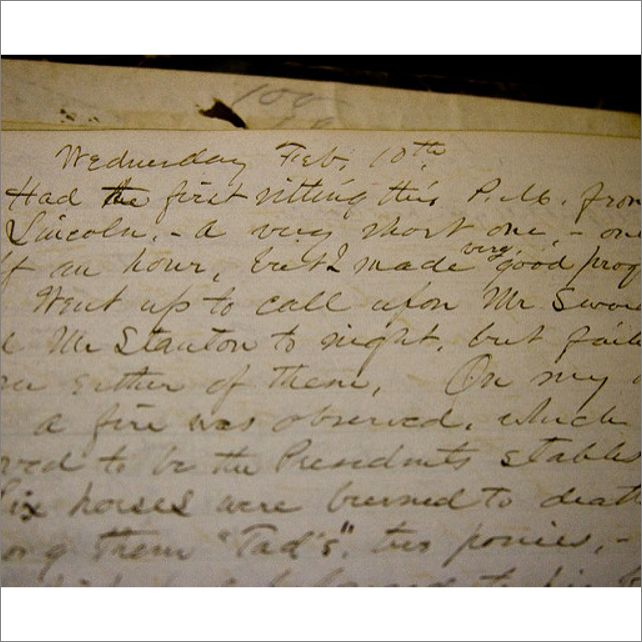 100
Wednesday Feb. 10th
Had the first sitting this P.M. from
Lincoln, - a very short one, - one
lf an hour, but I made very good prog
Went up to call upon Mr Swo
d Mr Stanton to night, but faile
ee either of them, On my
a fire was observed, which
oved to be the Presidents stables
Six horses were burned to death
ong them "Tad's" two ponies, -